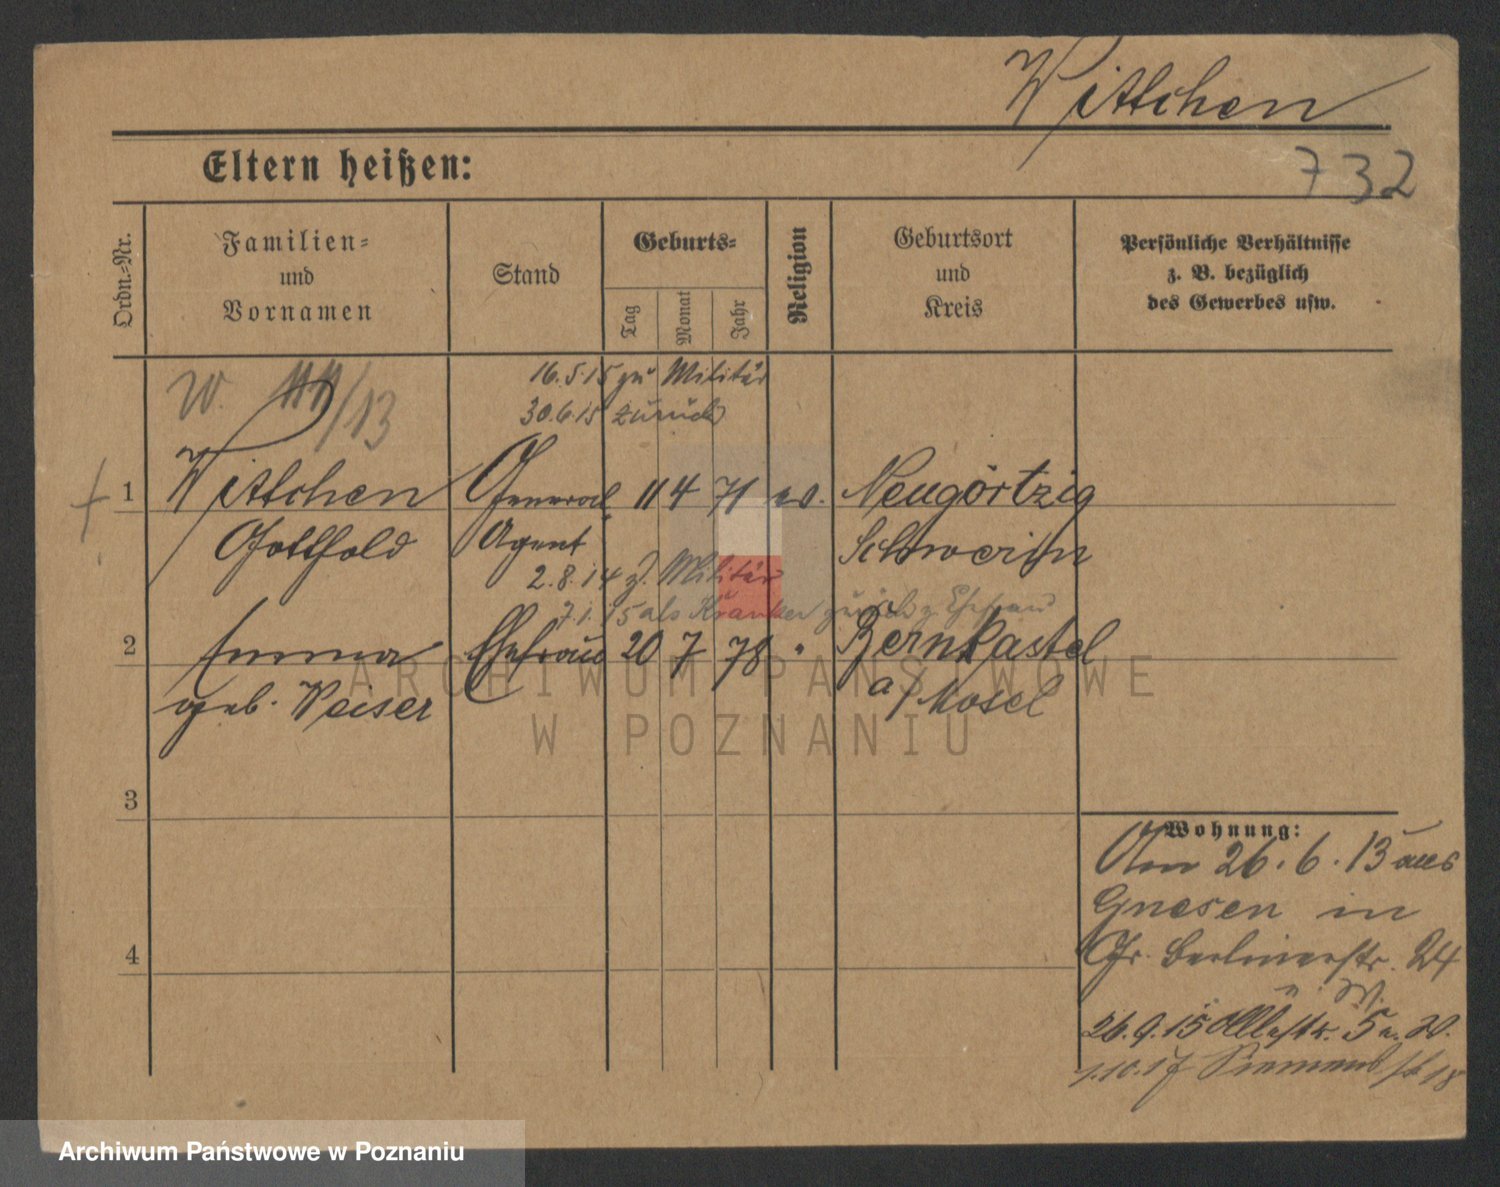 Wittchen
732
Eltern heißen:
Ordn.-Nr.
Familien-
und
Vornamen
Stand
Geburts-
Tag
Monat
Jahr
Religion
Geburtsort
und
Kreis
Persönliche Verhältnisse
z. B. bezüglich
des Gewerbes usw.
W. /13
16.5.15 zu Militär
30.6.15 zurück
1 Wittchen General 11 4 71 ev. Neugörtzig
Gotthold Agent Schwerin
2.8.14 z. Militär
7.1.15 als Kranker zurück z. Ehefrau
2 Emma Ehefrau 20 7 78 " Bernkastel
geb. Weiser a/Mosel
3
4
Wohnung:
Am 26.6.13 aus
Gnesen in
Gr. Berlinerstr. 24
u. W.
26.9.15 5 u. W.
1.10.17 18
ARCHIWUM PAŃSTWOWE
W POZNANIU
Archiwum Państwowe w Poznaniu